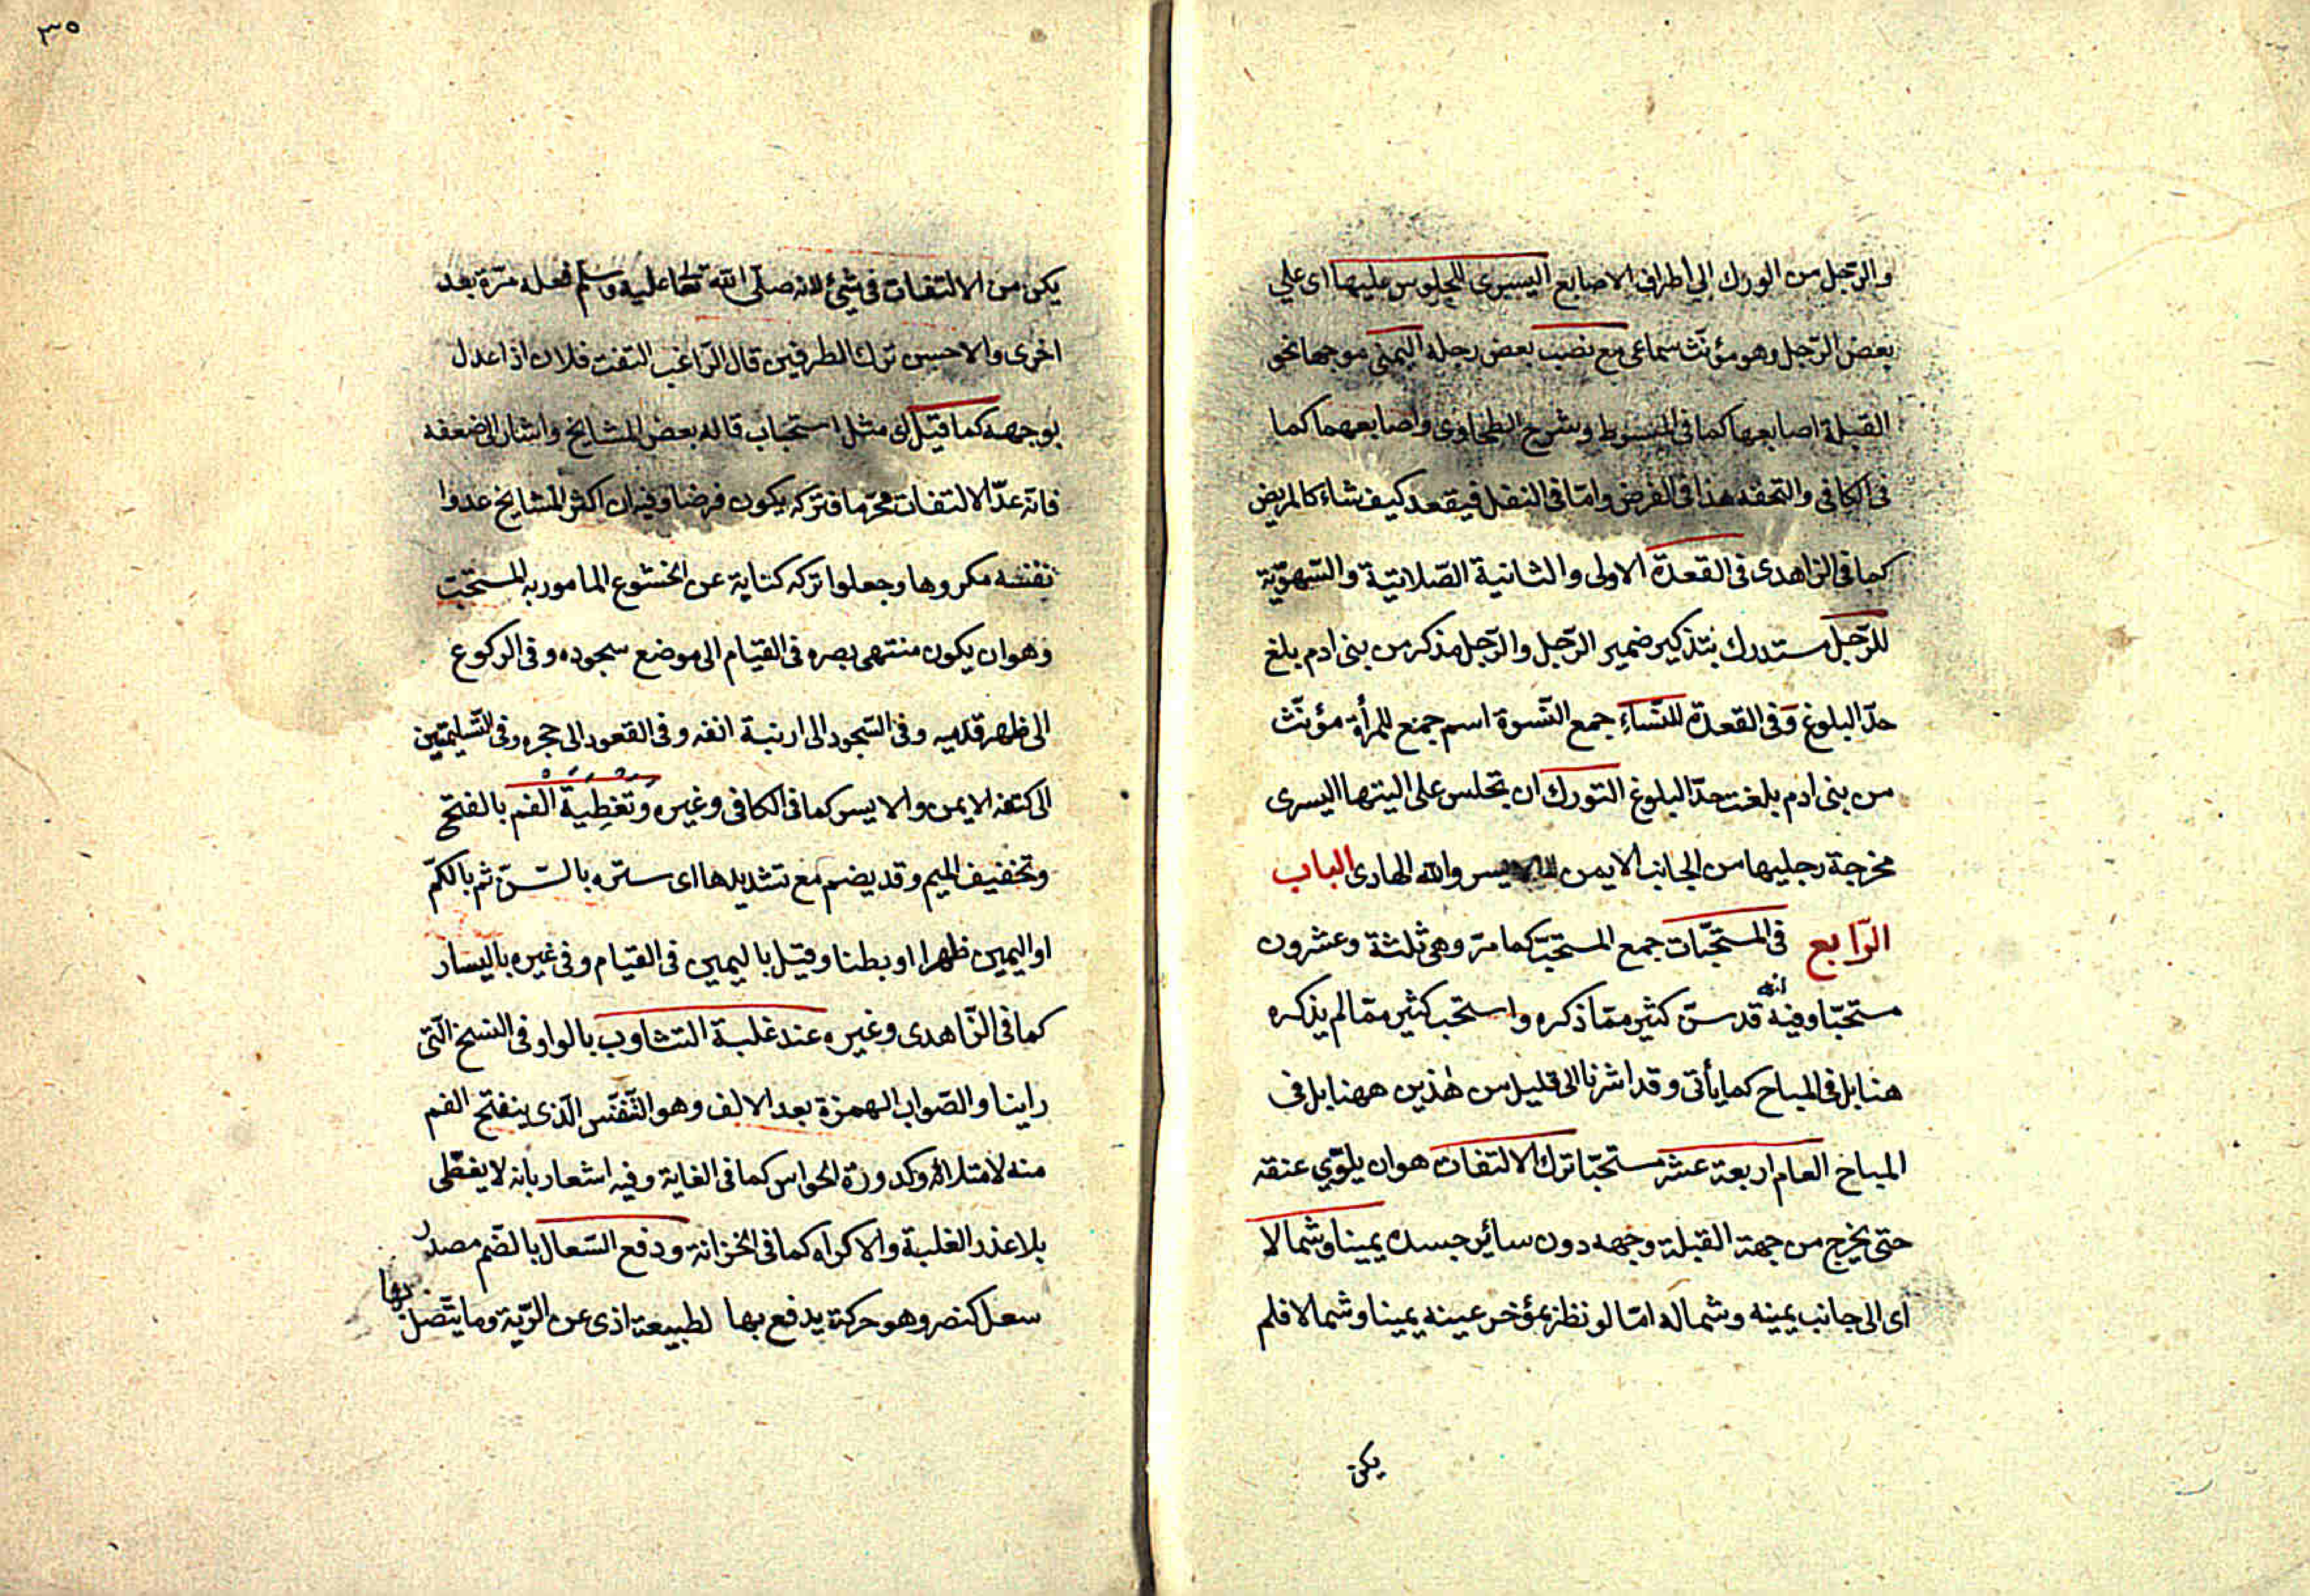 والرّجل من الورك الى أطراف الاصابع اليسرى للجلوس عليها اى على
بعض الرّجل وهو مؤنّث سماعى مع نصب بعض رجله اليمنى موجها نحو
القبلة اصابعها كما فى المبسوط وشرح الطحاوى واصابعهما كما
فى الكافى والتحفه هذا فى الفرض وامّا فى النفل فيقعد كيف شاء كالمريض
كما فى الزاهدى فى القعدة الاولى والثانية الصّلاتية والسّهويّة
للرّجل مستدرك بتذكير ضمير الرّجل والرّجل مذكر من بنى ادم بلغ
حدّ البلوغ وفى القعدة للنّساء جمع النّسوة اسم جمع للمرأة مؤنّث
من بنى ادم بلغت حدّ البلوغ التورك ان تجلس على اليتها اليسرى
مخرجة رجليها من الجانب الايمن والله الهادى الباب
الرّابع فى المستحبّات جمع المستحبّ كما مرّ وهى ثلثة وعشرون
مستحبّا وفيه انه قد سنّ كثير ممّا ذكره واستحب كثير ممّا لم يذكره
هنا بل فى المباح كما يأتى وقد اشرنا الى قليل من هٰذين ههنا بل فى
المباح العام اربعة عشر مستحبّا ترك الالتفات هو ان يلوّي عنقه
حتى يخرج من جهة القبلة وجهه دون سائر جسده يمينا وشمالا
اى الى جانب يمينه وشماله امّا لو نظر بمؤخر عينه يمينا وشمالا فلم
يكن
٣٥
يكن من الالتفات فى شئ لانه صلّى الله تعا عليه وسلم فعله مرّة بعد
اخرى والاحسن ترك الطرفين قال الرّاغب التفت فلان اذا عدل
بوجهه كما قيل اى مثل استحباب قاله بعض المشايخ واشار الى ضعفه
فانّه عدّ الالتفات محرّما فتركه يكون فرضا وفيه ان اكثر المشايخ عدوا
نفسه مكروها وجعلوا تركه كناية عن الخشوع المامور به المستحبّ
وهو ان يكون منتهى بصره فى القيام الى موضع سجوده وفى الركوع
الى ظهر قدميه وفى السّجود الى ارنبة انفه وفى القعود الى حجره وفى التّسليمتين
الى كتفه الايمن والايسر كما فى الكافى وغيره وتغطية الفم بالفتح
وتخفيف الميم وقد يضم مع تشديدها اى ستره بالسّنّ ثم بالكمّ
او اليمين ظهرا او بطنا وقيل باليمين فى القيام وفى غيره باليسار
كما فى الزّاهدى وغيره عند غلبة التثاوب بالواو فى النسخ الّتى
راينا والصّواب الهمزة بعد الالف وهو التّنفّس الّذى ينفتح الفم
منه لامتلاء وكدورة الحواس كما فى الغاية وفيه اشعار بانه لا يغطّى
بلا عذر الغلبة والاكراه كما فى الخزانة ودفع السّعال بالضّم مصدر
سعل كنصر وهو حركة يدفع بها لطبيعة اذى عن الرّية وما يتّصل بها